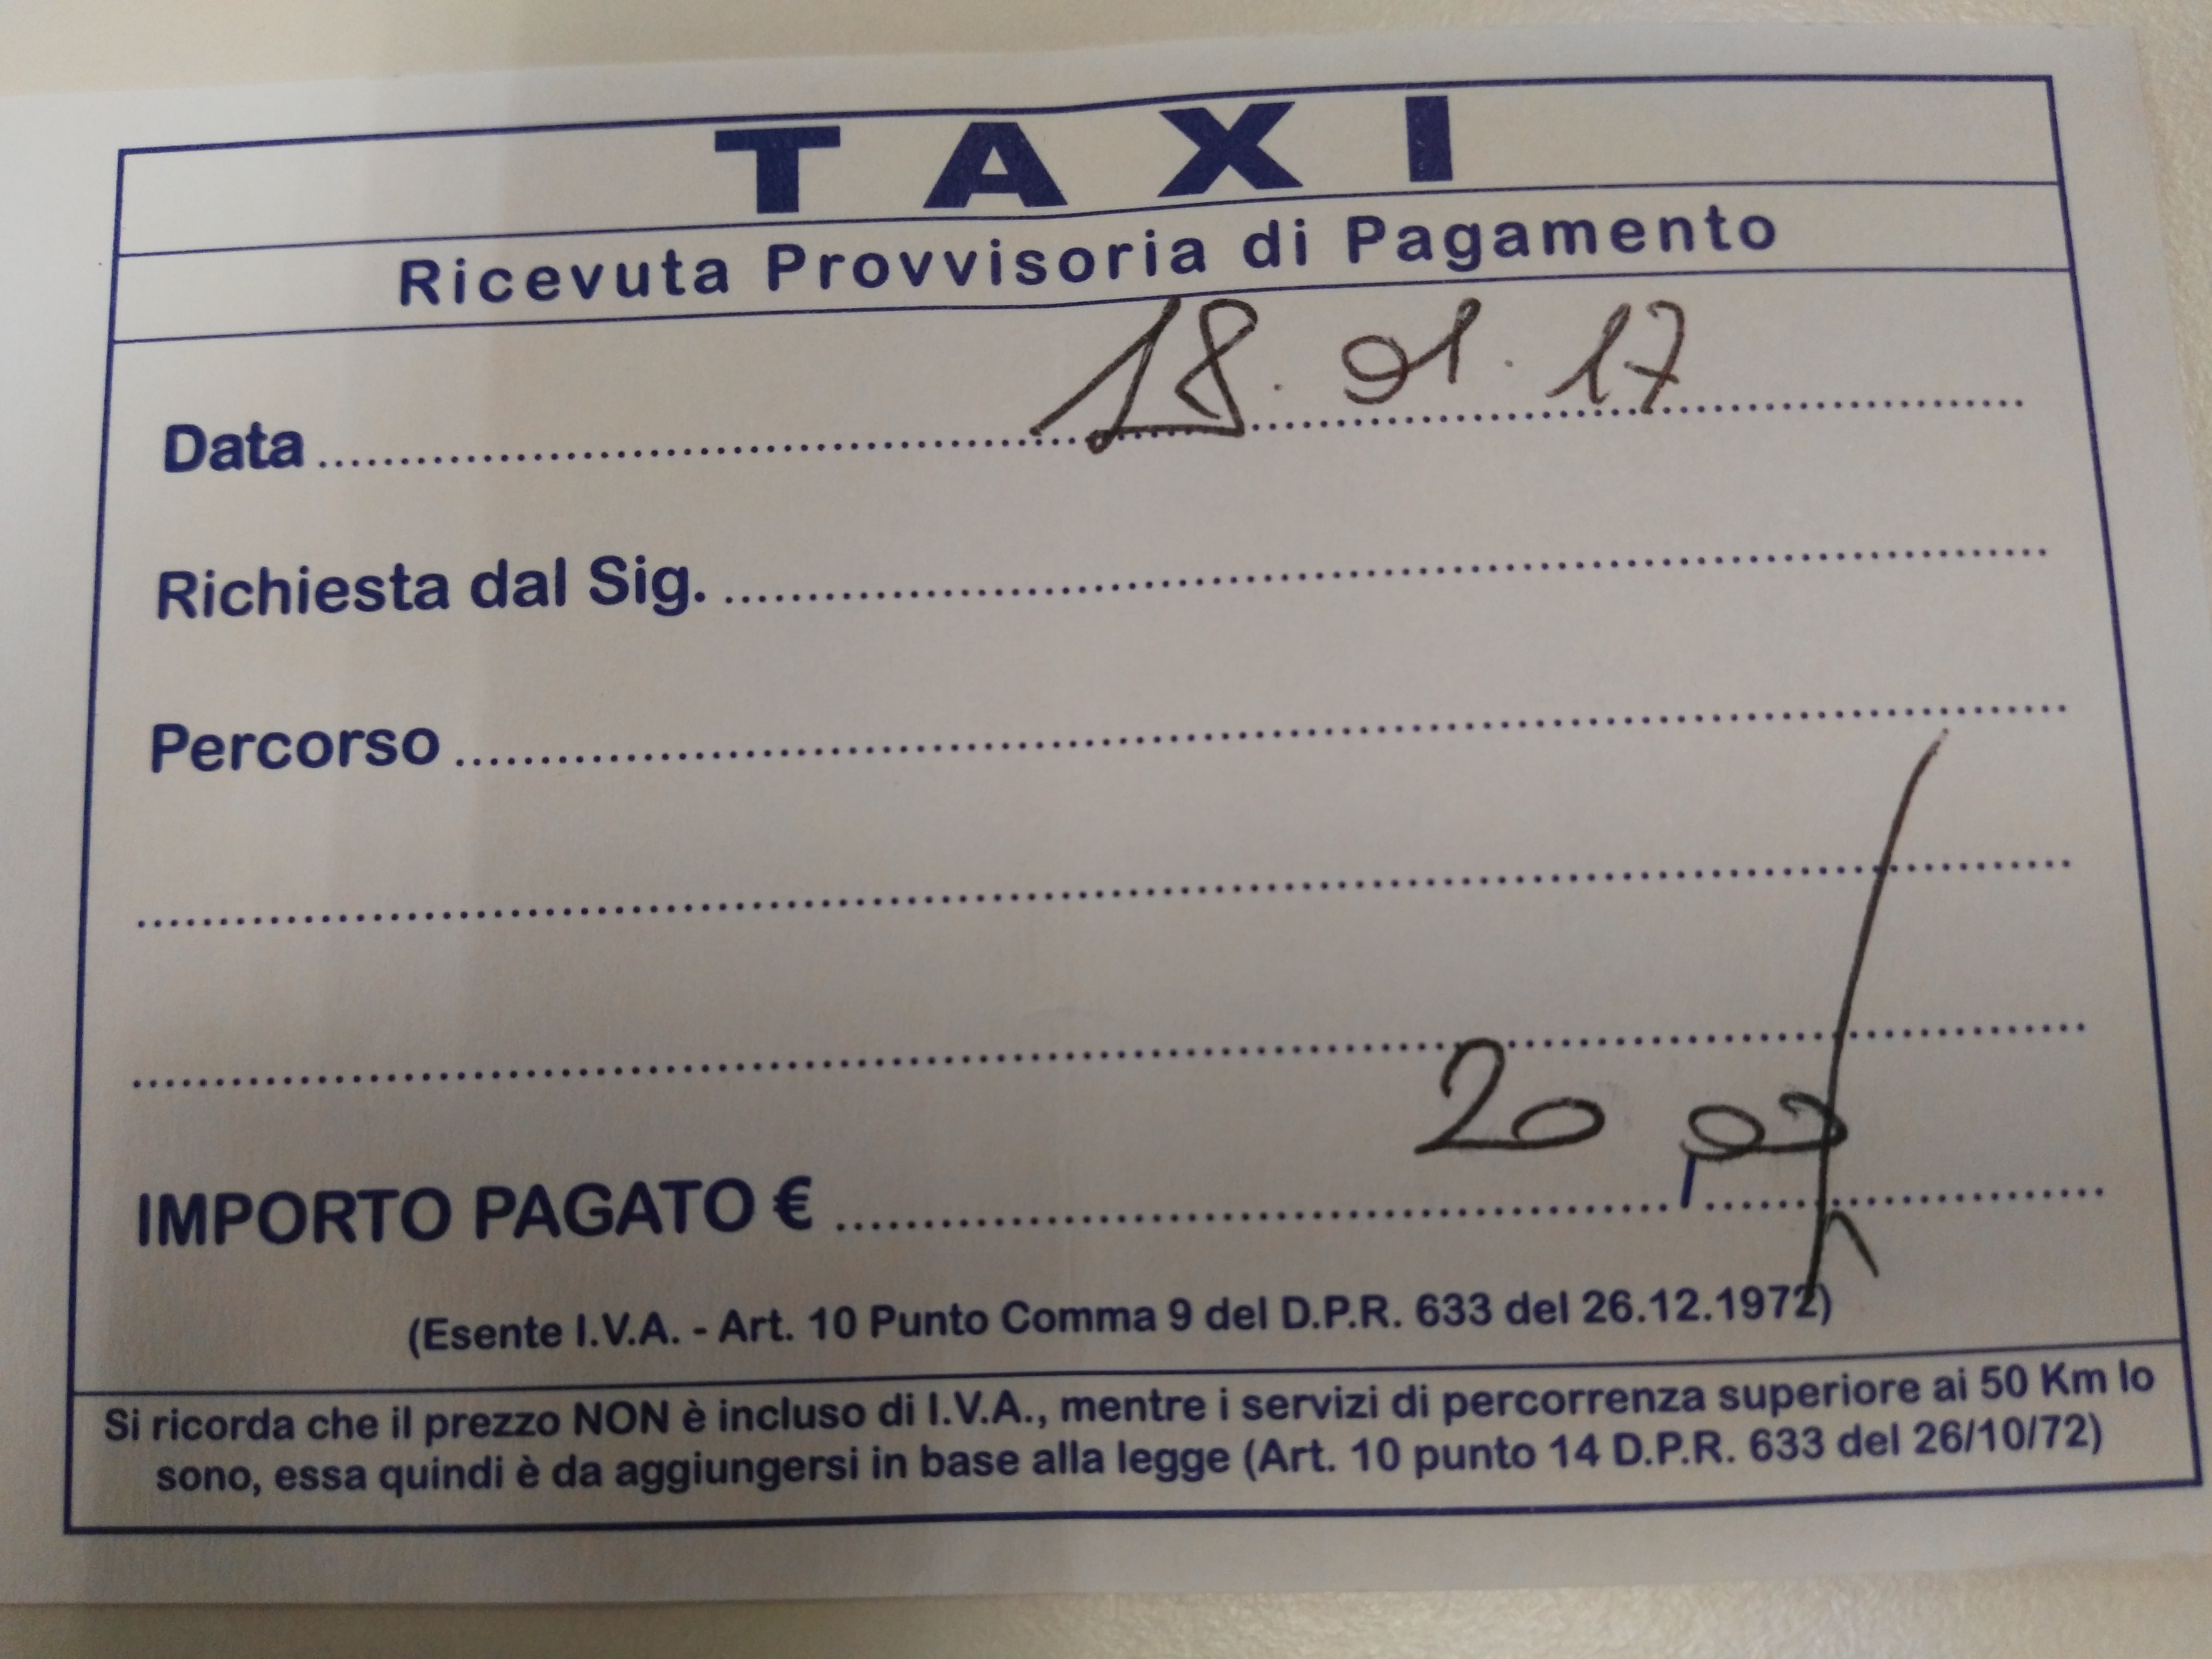 TAXI
Ricevuta Provvisoria di Pagamento
Data 18.01.17
Richiesta dal Sig.
Percorso
IMPORTO PAGATO € 20,00
(Esente I.V.A. - Art. 10 Punto Comma 9 del D.P.R. 633 del 26.12.1972)
Si ricorda che il prezzo NON è incluso di I.V.A., mentre i servizi di percorrenza superiore ai 50 Km lo
sono, essa quindi è da aggiungersi in base alla legge (Art. 10 punto 14 D.P.R. 633 del 26/10/72)